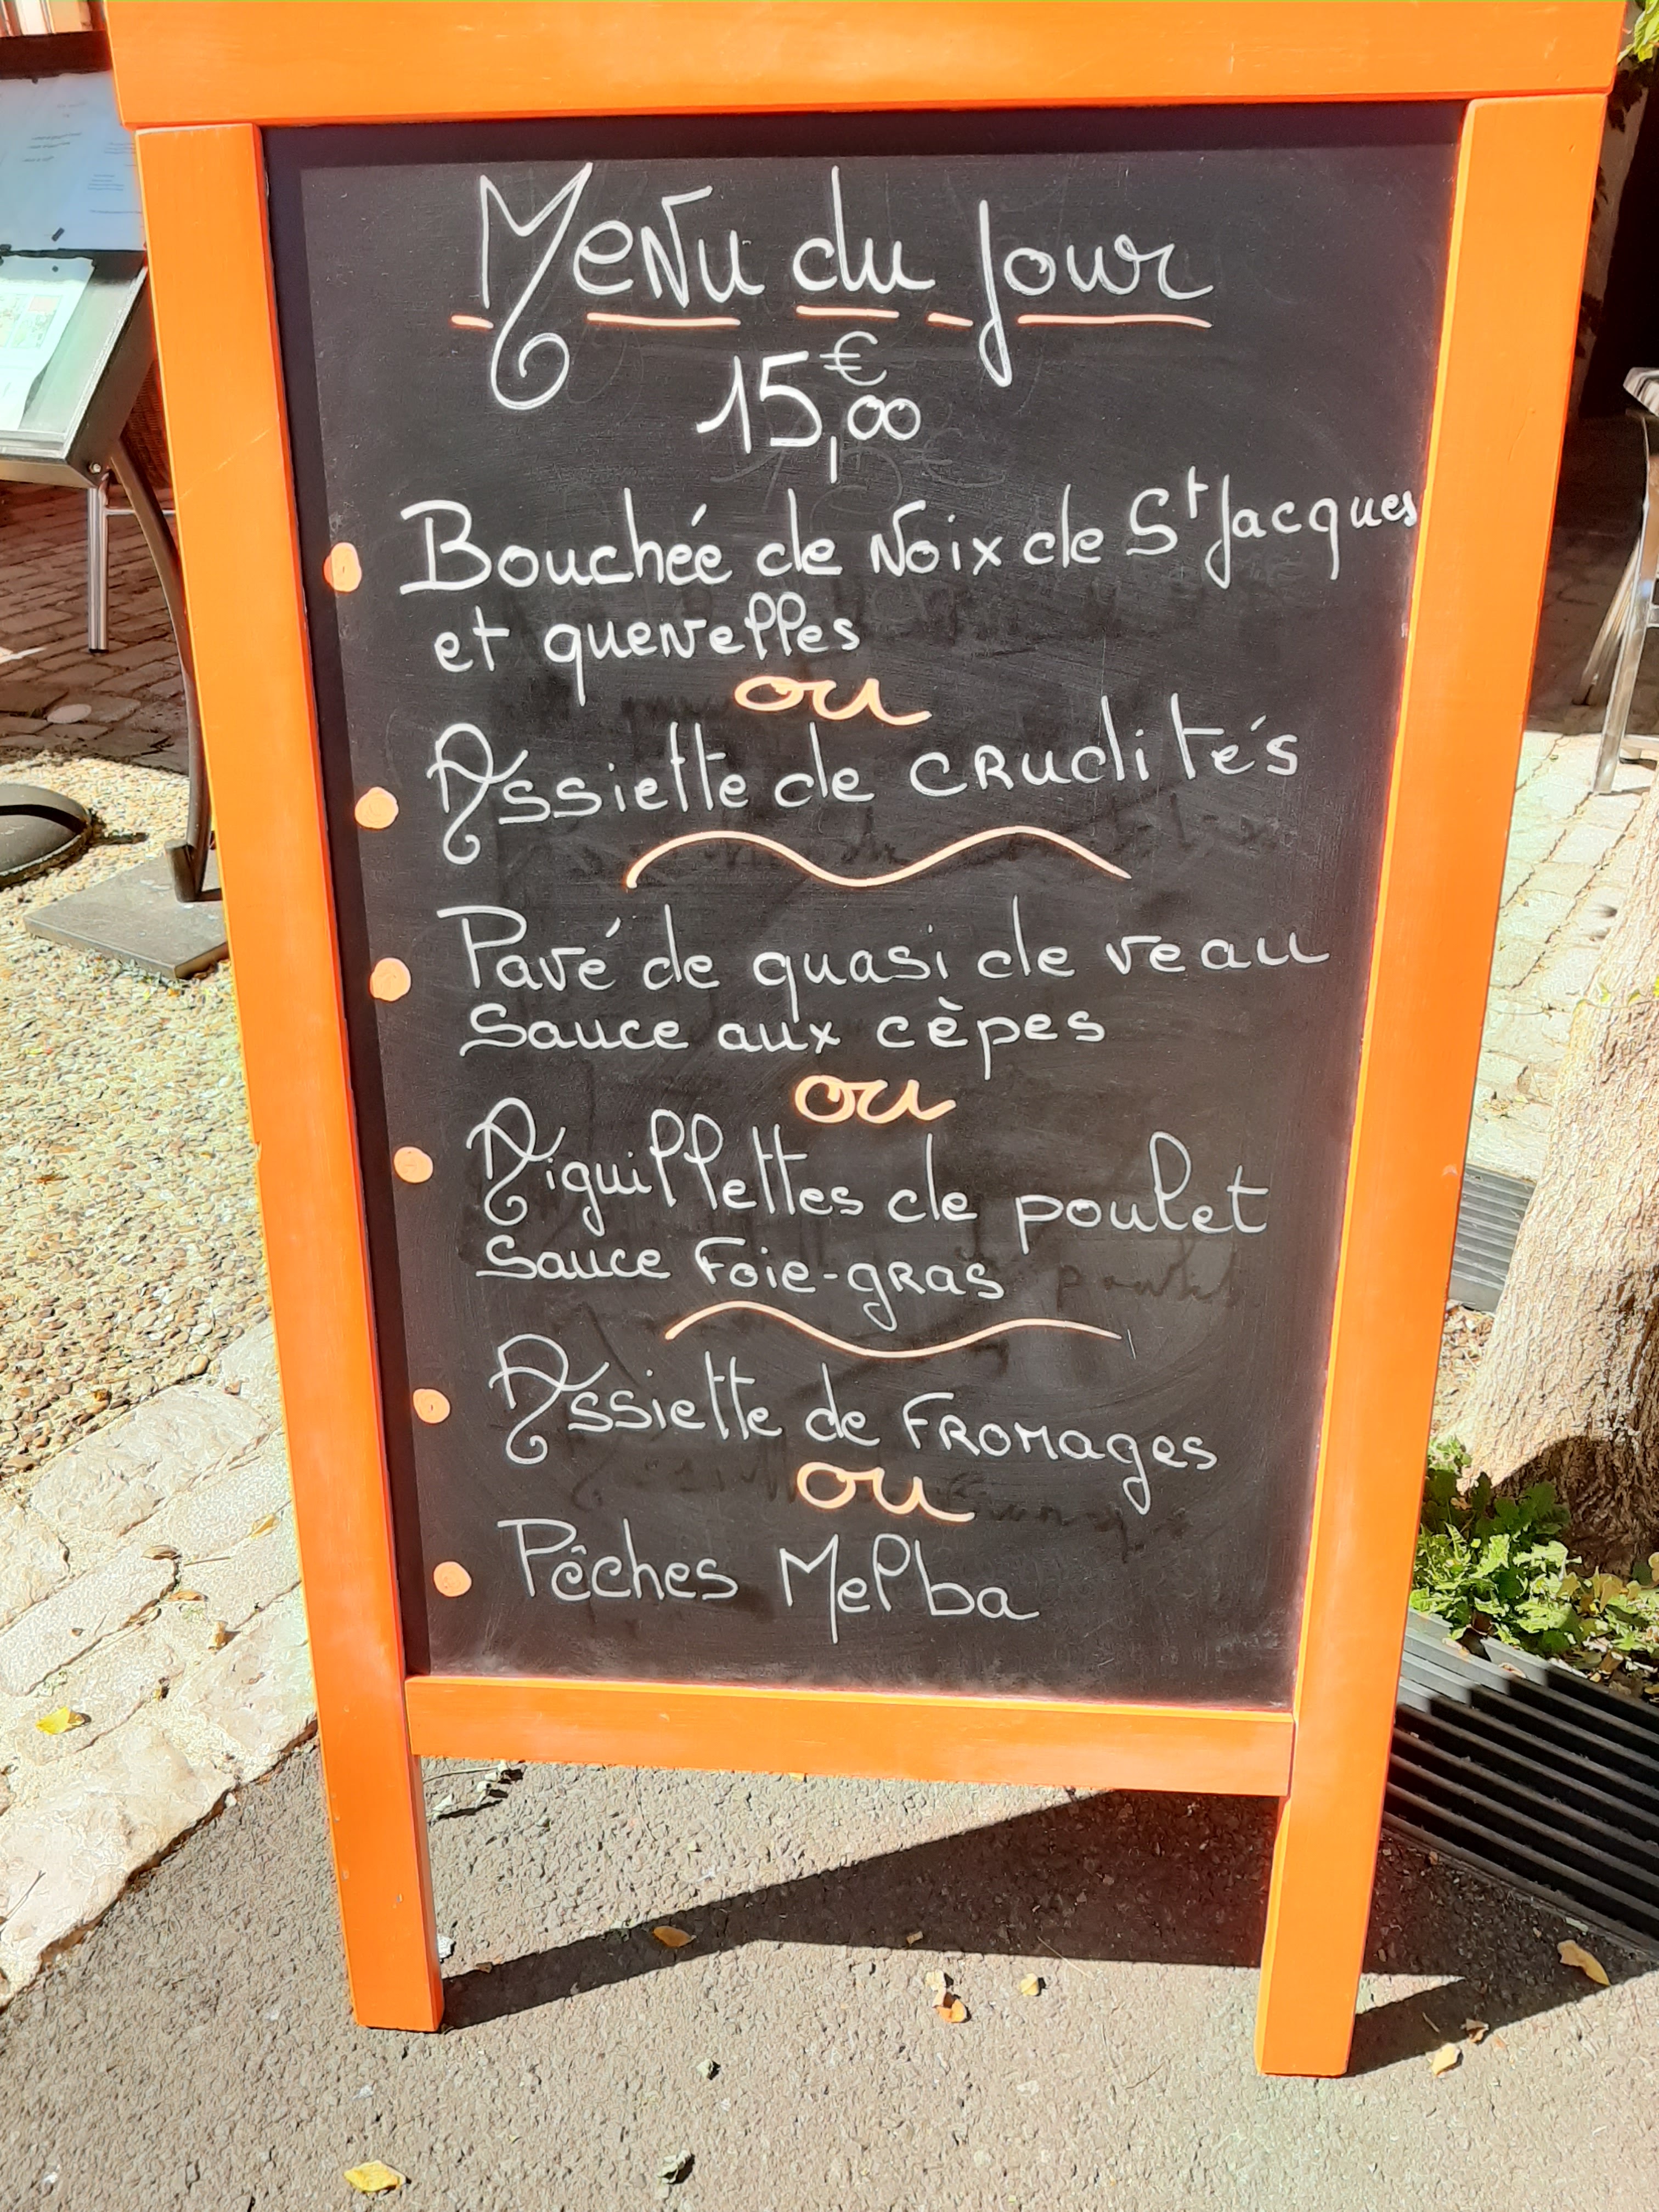 Menu du jour
15,€00
Bouchée de Noix de St Jacques
et quenelles
ou
Assiette de crudités
Pavé de quasi de veau
Sauce aux cèpes
ou
Aiguillettes de poulet
Sauce Foie-gras
Assiette de Fromages
ou
Pêches Melba